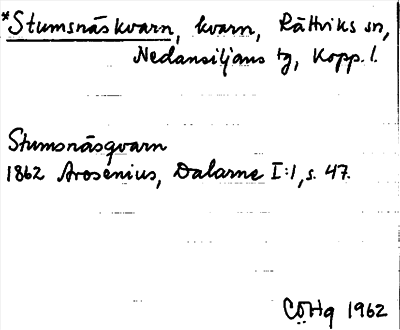 *Stumsnäskvarn, kvarn, Rättviks sn,
Nedansiljans tg, Kopp. l.
Stumsnäsqvarn
1862 Arosenius, Dalarne I:1, s. 47.
CÖHg 1962